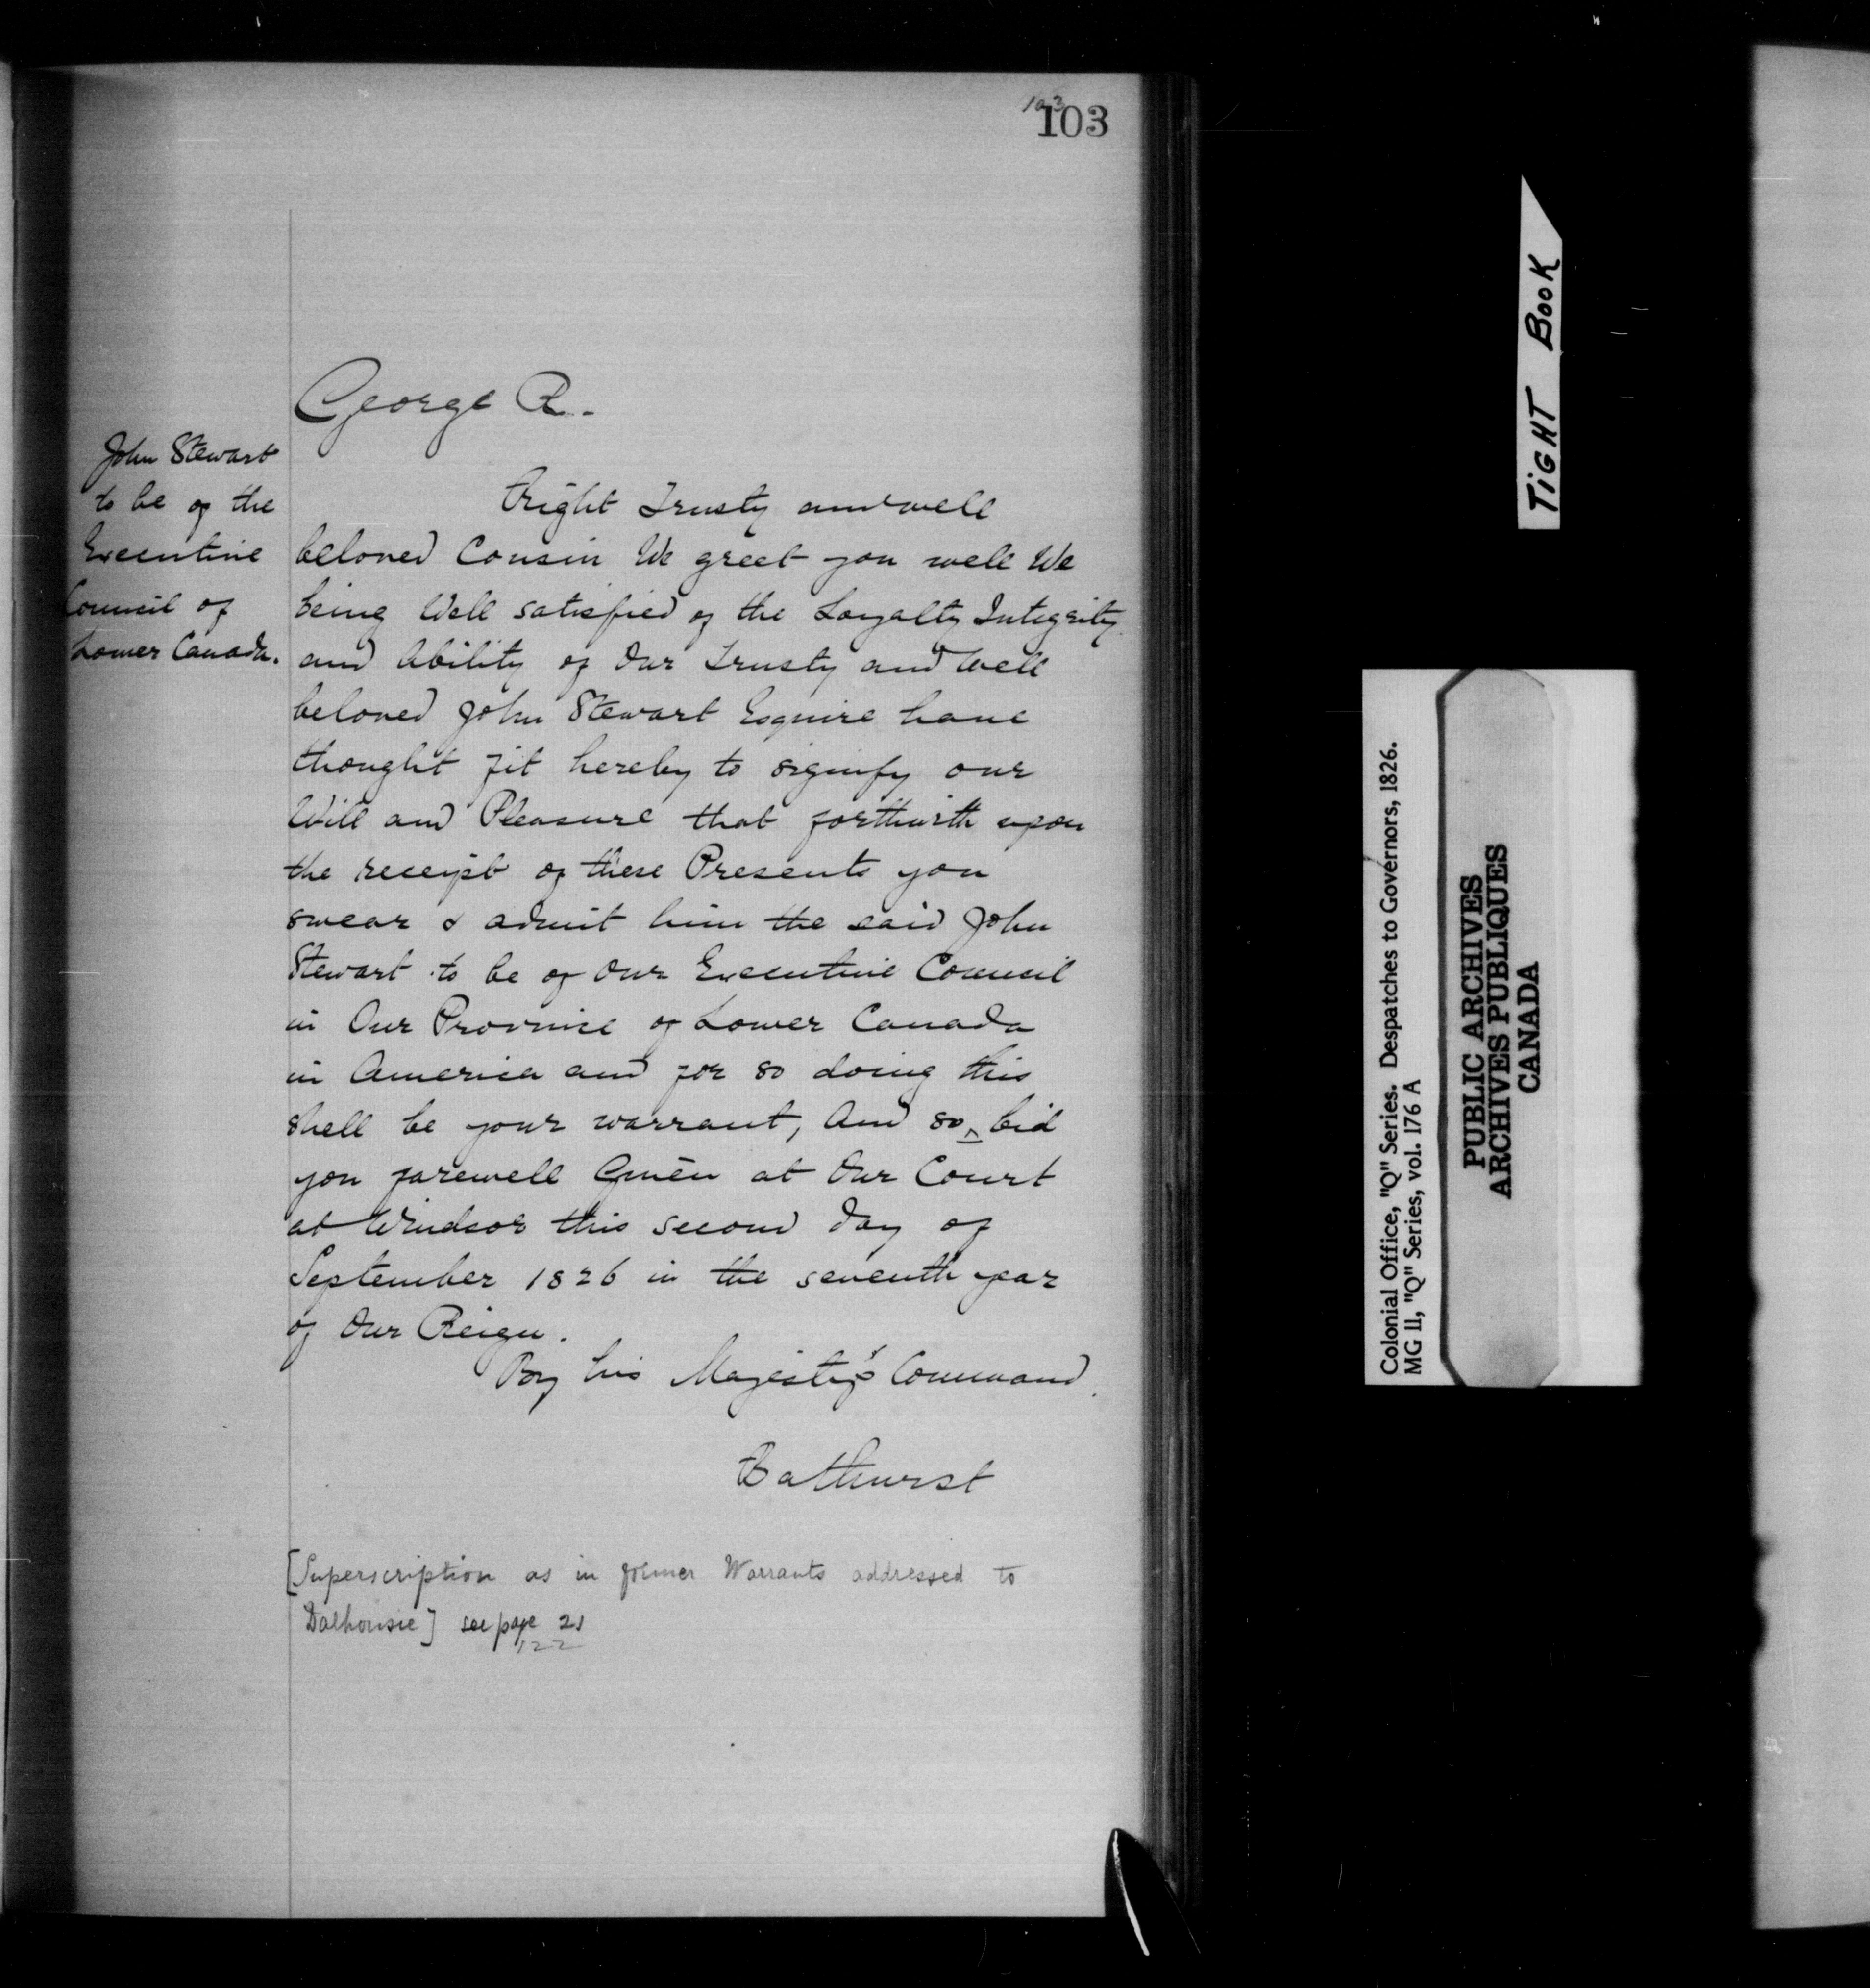 103
103
George R.
John Stewart
to be of the
Executive
Council of
Lower Canada.
Right Trusty and well
beloved Cousin We greet you well We
being Well satisfied of the Loyalty Integrity
and Ability of Our Trusty and Well
beloved John Stewart Esquire have
thought fit hereby to signify our
Will and Pleasure that forthwith upon
the receipt of these Presents you
swear & admit him the said John
Stewart to be of Our Executive Council
in Our Province of Lower Canada
in America and for so doing this
shall be your warrant, And so ‸ bid
you farewell Given at Our Court
at Windsor this second day of
September 1826 in the seventh year
of Our Reign.
By his Majesty's Command.
Bathurst
[Superscription as in former Warrants addressed to
Dalhousie] see page 21
122
TIGHT BOOK
Colonial Office, "Q" Series. Despatches to Governors, 1826.
MG 11, "Q" Series, vol. 176 A
PUBLIC ARCHIVES
ARCHIVES PUBLIQUES
CANADA